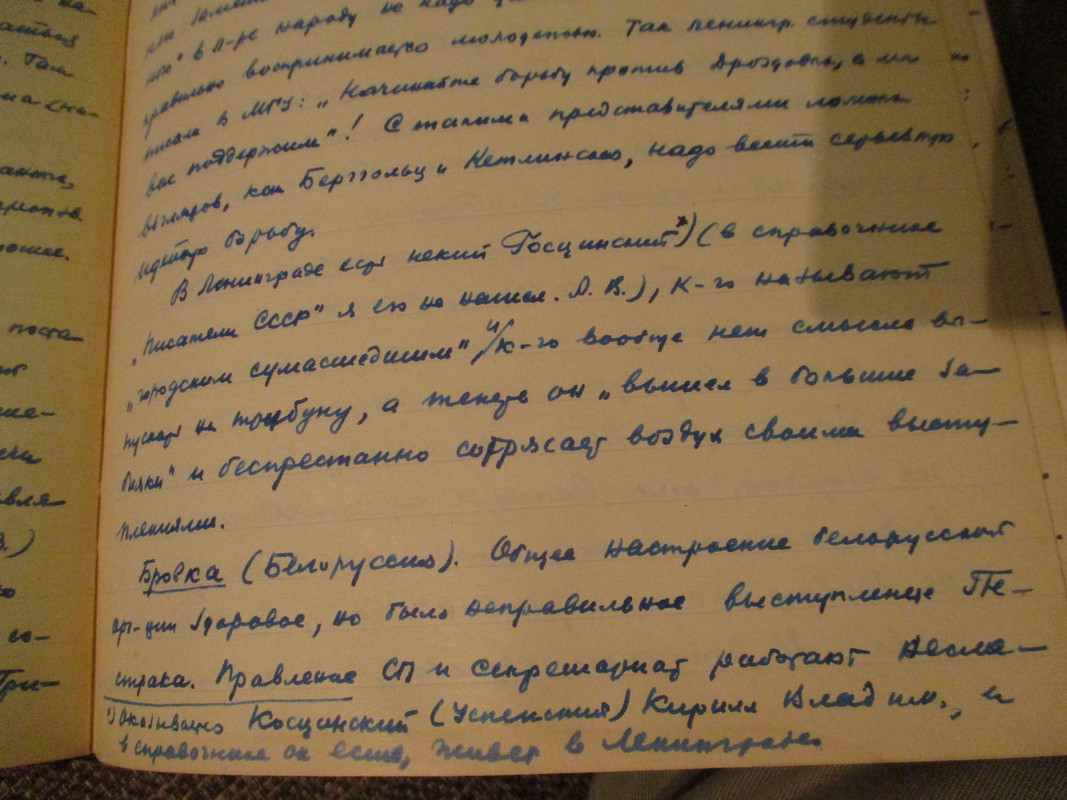 на-
аться
. Там
ма (на-
поста-
ме-
ечи
вля-
В.)
со-
Три-
"в л-ре народу не надо
правильно воспринимается молодежью. Так ленингр. студенты
писали в МГУ: „Начинайте борьбу против Дроздова, а мы
вас поддержим"! С такими представителями ложных
взглядов, как Берггольц и Кетлинская, надо вести серьезную
идейную борьбу.
В Ленинграде есть некий Госцинский*) (в справочнике
„Писатели СССР" я его не нашел. А. В.), к-го называют
„городским сумасшедшим" и к-го вообще нет смысла вы-
пускать на трибуну, а теперь он „вышел в большие за-
бияки" и беспрестанно сотрясает воздух своими высту-
плениями.
Бровка (Белоруссия). Общее настроение белорусской
орг-ции здоровое, но было неправильное выступление Пе-
страка. Правление СП и секретариат работают несла-
*) Оказывается Косцинский (Успенский) Кирилл Владим., и
в справочнике он есть, живет в Ленинграде.